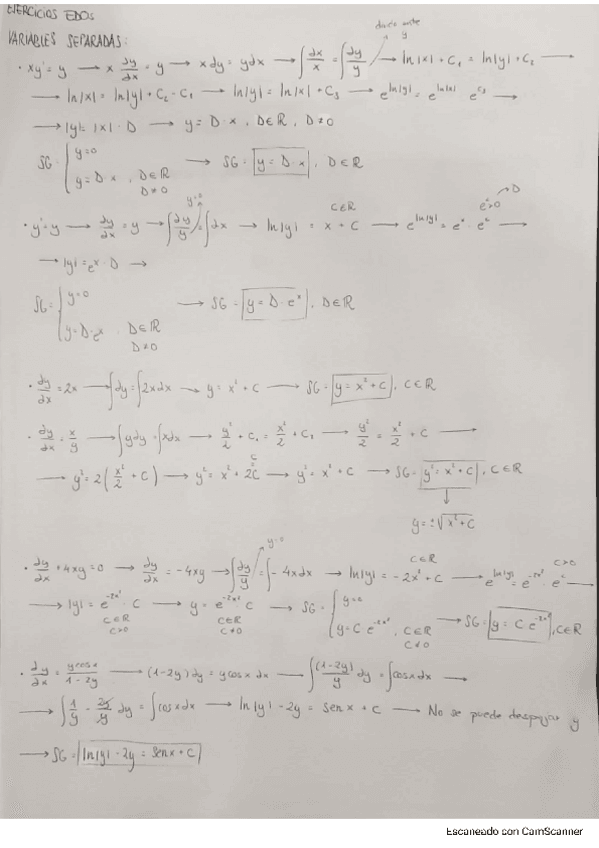 EJERCICIOS EDOS
VARIABLES SEPARADAS:
divido entre y
· xy' = y → x dy/dx = y → x dy = y dx → ∫ dx/x = ∫ dy/y → ln|x| + C₁ = ln|y| + C₂ →
→ ln|x| = ln|y| + C₂ - C₁ → ln|y| = ln|x| + C₃ → e^ln|y| = e^ln|x| e^C₃ →
→ |y| = |x| · D → y = D · x, D∈ℝ, D≠0
SG = { y=0 ; y = D·x, D∈ℝ D≠0 → SG = y = D·x, D∈ℝ
· y' = y → dy/dx = y → ∫ dy/y = ∫ dx → ln|y| = x + C → e^ln|y| = e^x · e^c →
y=0 C∈ℝ e^c>0 → D
→ |y| = e^x · D →
SG = { y=0 ; y = D·e^x, D∈ℝ D≠0 → SG = y = D·e^x, D∈ℝ
· dy/dx = 2x → ∫dy = ∫2x dx → y = x² + C → SG = y = x² + C, C∈ℝ
· dy/dx = x/y → ∫y dy = ∫x dx → y²/2 + C₁ = x²/2 + C₂ → y²/2 = x²/2 + C →
→ y² = 2(x²/2 + C) → y² = x² + 2C → y² = x² + C → SG = y² = x² + C, C∈ℝ
C
y = ±√(x² + C)
y=0 C∈ℝ C>0
· dy/dx + 4xy = 0 → dy/dx = -4xy → ∫ dy/y = ∫ -4x dx → ln|y| = -2x² + C → e^ln|y| = e^-2x² · e^c →
→ |y| = e^-2x² · C → y = e^-2x² C → SG = { y=0 ; y = C e^-2x², C∈ℝ C≠0 → SG = y = C e^-2x², C∈ℝ
C∈ℝ C>0 C∈ℝ C≠0
· dy/dx = ycosx/1-2y → (1-2y) dy = ycosx dx → ∫ (1-2y)/y dy = ∫cosx dx →
→ ∫ 1/y - 2y/y dy = ∫cosx dx → ln|y| - 2y = senx + C → No se puede despejar y
→ SG = ln|y| - 2y = senx + C
Escaneado con CamScanner